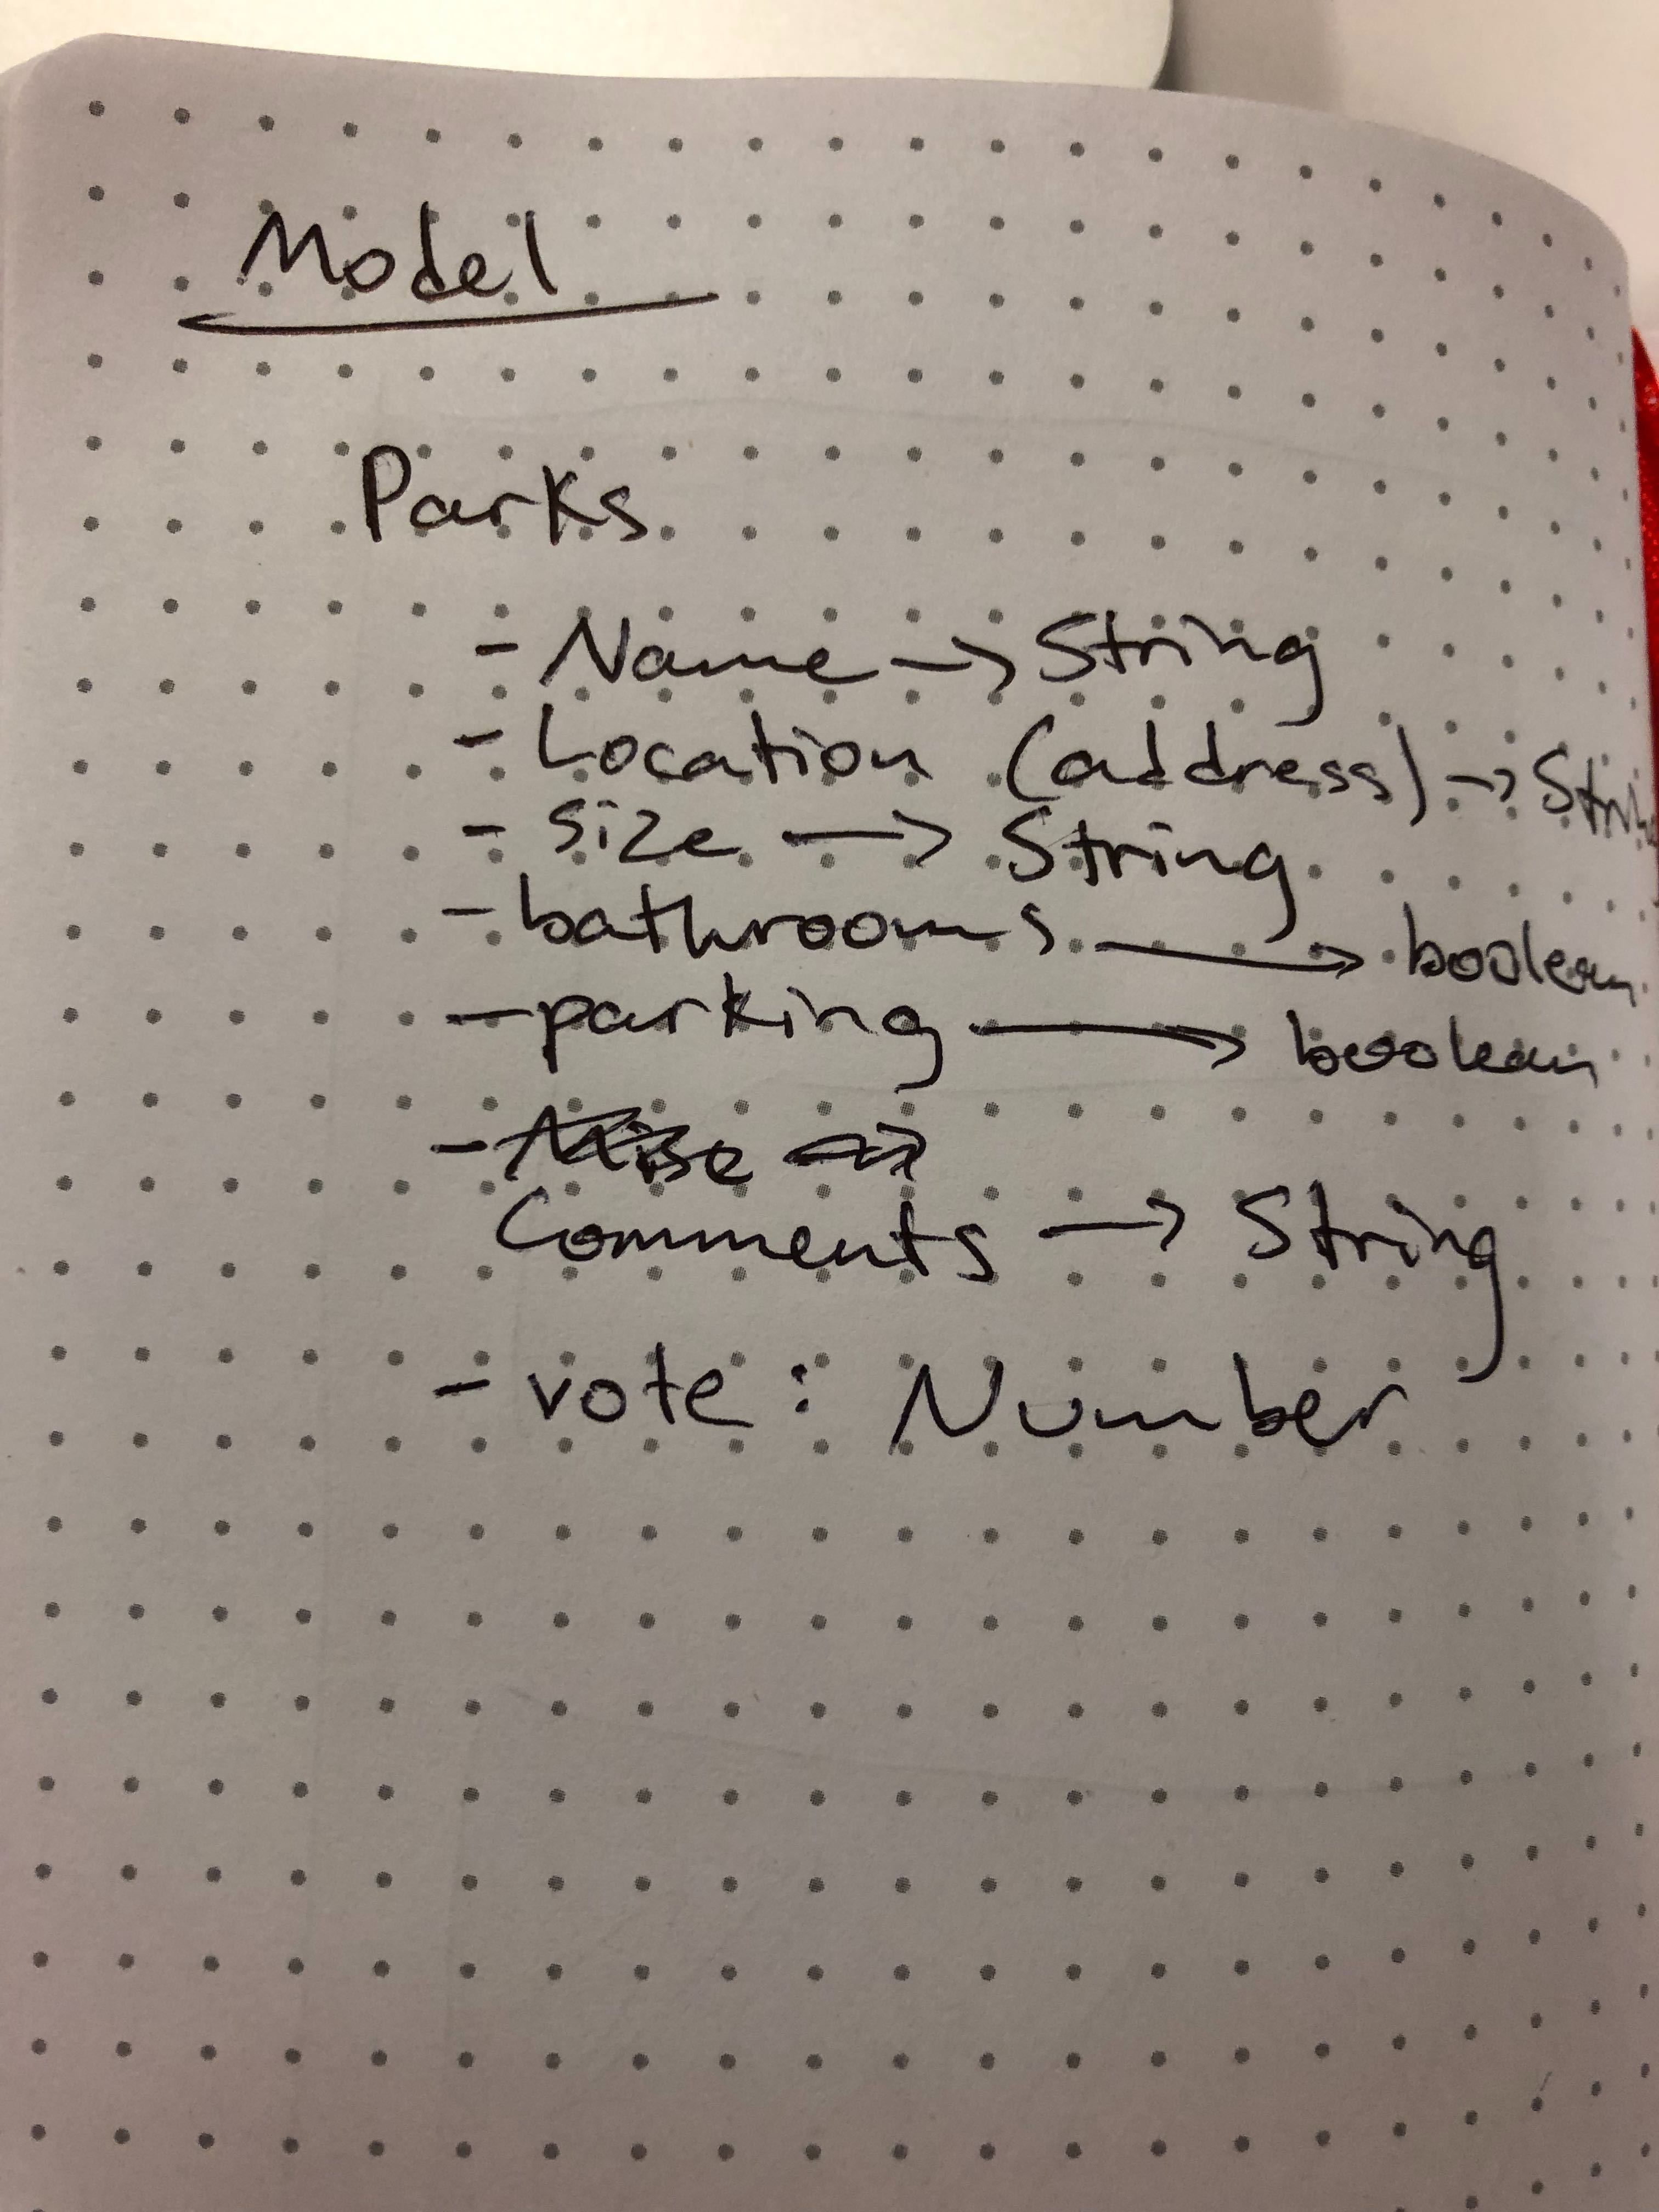 Model
Parks
- Name → String
- Location (address) → Strin
- size → String
- bathrooms → boolean
- parking → boolean
-
Comments → String
- vote : Number